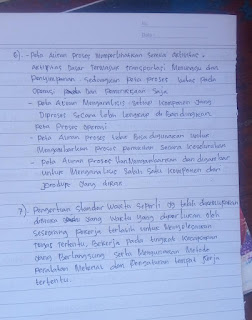 6). - Peta Aliran Proses memperlihatkan semua aktivitas -
aktivitas Dasar Termasuk transportasi Menunggu dan
Penyimpanan. Sedangkan peta proses
pada Dan Pemeriksaan Saja
- Peta Aliran Menganalisis setiap komponen yang
Diproses Secara lebih Lengkap di Bandingkan
Peta Proses Operasi
- Peta Aliran proses tidak Bisa digunakan untuk
Menggambarkan proses secara keseluruhan
- Peta Aliran Proses Menggambarkan dan digunakan
untuk Menganalisis Salah Satu Komponen dan
yang
7) Pengertian Standar Waktu Seperti yg telah
dimana yang Waktu yang diperlukan oleh
seseorang pekerja terlatih untuk Menyelesaikan
tugas tertentu, Bekerja pada tingkat Kecepatan
yang Berlangsung serta Menggunakan Metode
Peralatan Material dan Pengaturan tempat Kerja
tertentu.